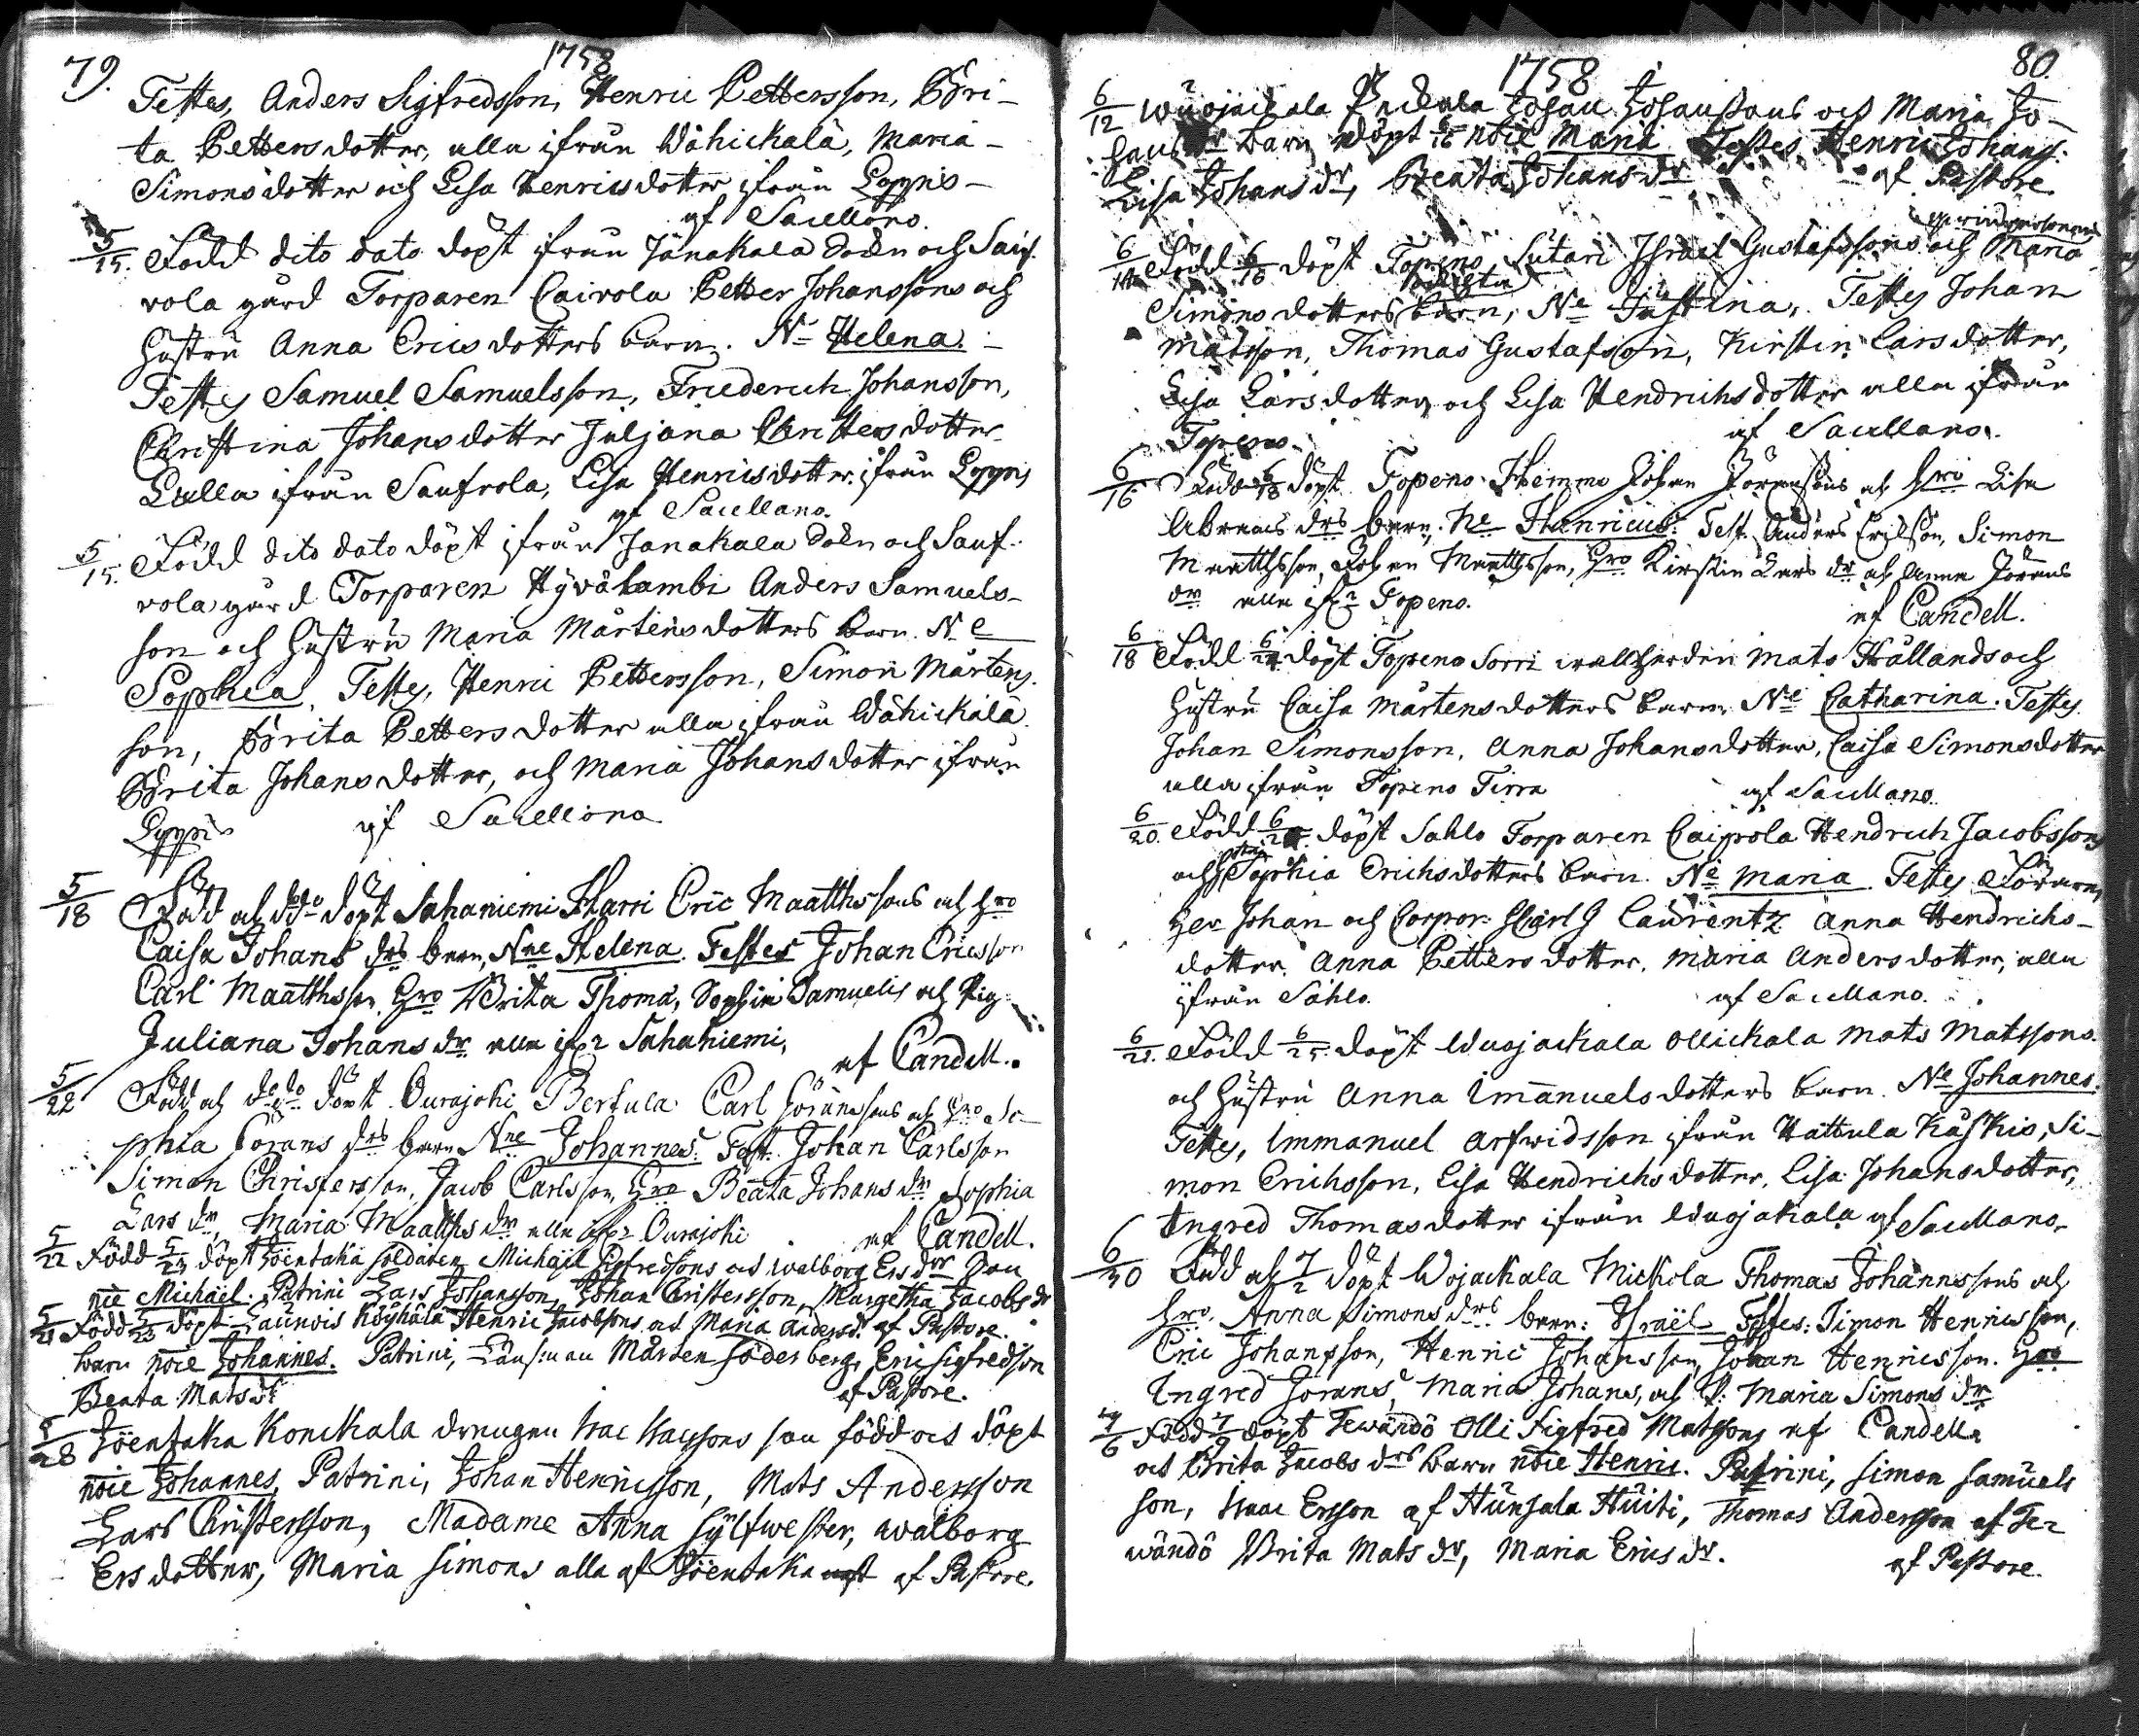 79.
1758
Testes, Anders Sigfredsson, Henric Pettersson, Bri-
ta Pettersdotter, alla ifrån Wähickalä, Maria
Simonsdotter och Lisa Henricsdotter ifrån Loppis
af Sacellano.
5/15. Född dito dato döpt ifrån Janakala Sockn och Sauf-
vola gård Torparen Cairola Petter Johanssons och
hustru Anna Ericsdotters barn. Ne Helena.
Testes Samuel Samuelsson, Friederich Johansson,
Christina Johansdotter Juljana Christersdotter
alla ifrån Saufvola, Lisa Henricsdotter ifrån Loppis
af Sacellano.
5/15. Född dito dato döpt ifrån Janakala Sockn och Sauf-
vola gård Torparen Hyvälambi Anders Samuels-
son och hustru Maria Mårtensdotters barn. Ne
Sophia. Testes, Henric Pettersson, Simon Mårtens-
son, Brita Pettersdotter alla ifrån Wähickalä
Brita Johansdotter, och Maria Johansdotter ifrån
Loppis af Sacellano
5/18 Född och dodo döpt Sahaniemi Harri Eric Maatthssons och Hro
Caisa Johans drs barn, Nne Helena. Testes Johan Ericsson
Carl Maatthsson, Hro Brita Thomæ, Sophia Samuelis och Pig
Juliana Johans dr alla ifr Sahaniemi,
af Candell.
5/22 Född och dodo döpt Ourajoki Bertula Carl Göranssons och Hro So-
phia Görans drs barn Nne Johannes. Test: Johan Carlsson
Simon Christersson, Jacob Carlsson, Hro Beata Johans dr Sophia
Lars dr, Maria Maatths dr alla ifr Ourajoki
af Candell.
5/22 Född 5/23 döpt Höentaka soldaten Michael Sigfredsons och Walborg Ers dr Son
nöie Michäel. Patrini Lars Johansson, Johan Christersson, Margetha Jacobs dr
5/21 Född 5/23 döpt Launois Köyhälä Henric Jacobsons och Maria Andersd. af Pastore.
barn nöie Johannes. Patrini, Länsman Mårten Söderberg, Eric Sigfredson
Beata Mats dr
af Pastore.
5/28 Höentaka Konckala drengen Isac Isacssons son född och döpt
nöie Johannes, Patrini, Johan Henricsson, Mats Andersson
Lars Christersson, Madame Anna Sylfwester, Walborg
Ersdotter, Maria Simons alla af Höentaka af Pastore.
80.
1758
6/12 Wuojackala Johan Johanssons och Maria Jo-
hans barn döpt nöie Maria Testes Henric Johans.
Lisa Johans dr, Beata Johans dr af Pastore
6/14 Född 6/18 döpt Topeno Sutari Israel Gustafssons och Maria
Simonsdotters barn, Ne Justina, Testes Johan
Matsson, Thomas Gustafsson, Kirstin Larsdotter,
Lisa Larsdotter, och Lisa Hendrichsdotter alla ifrån
Topeno. af Sacellano.
6/16 Född 6/18 döpt Topeno Hemmo Johan Göranssons och Hro Lisa
Abrams drs barn, Ne Hanricus: Test. Anders Ericsson, Simon
Maatthsson, Johan Maatthsson, Hro Kirstin Lars dr och Anna Görans
dr alla ifr Topeno.
af Candell.
6/18 Född döpt Topeno Sorri wallherden Mats Hållands och
hustru Caisa Mårtensdotters barn Ne Catharina. Testes
Johan Simonsson, Anna Johansdotter, Caisa Simonsdotter
alla ifrån Topeno Tirra af Sacellano.
6/20. Född döpt Sahlo Torparen Caipola Hendrich Jacobssons
och Sophia Erichsdotters barn. Ne Maria. Testes
Johan och Corpor: Laurentz Anna Hendrichs-
dotter, Anna Pettersdotter, Maria Andersdotter, alla
ifrån Sahlo. af Sacellano.
6/21. Född 6/25. döpt Wuojackala Ollickala Mats Matssons
och hustru Anna Imanuelsdotters barn. Ne Johannes.
Testes, Immanuel Arfwidsson ifrån Hattula Kåskis, Si-
mon Erichsson, Lisa Hendrichsdotter, Lisa Johansdotter,
Ingred Thomasdotter ifrån Wuojakala af Sacellano.
6/30 Född och 7/2 döpt Wojackala Mickola Thomas Johannssons och
Hro. Anna Simons drs barn: Israël Testes: Simon Henricsson,
Eric Johansson, Henric Johansson, Johan Henricsson. Hro
Ingred Jorans, Maria Johans, och P: Maria Simons dr
7/6 Född 7/9 döpt Tewändö Olli Sigfred Matssons af Candell
och Brita Jacobs drs barn nöie Henric. Patrini, Simon Samuels
son, Isaac Ersson af Hunsala Huiti, Thomas Andersson af Te-
wändö Brita Mats dr, Maria Erics dr.
af Pastore.